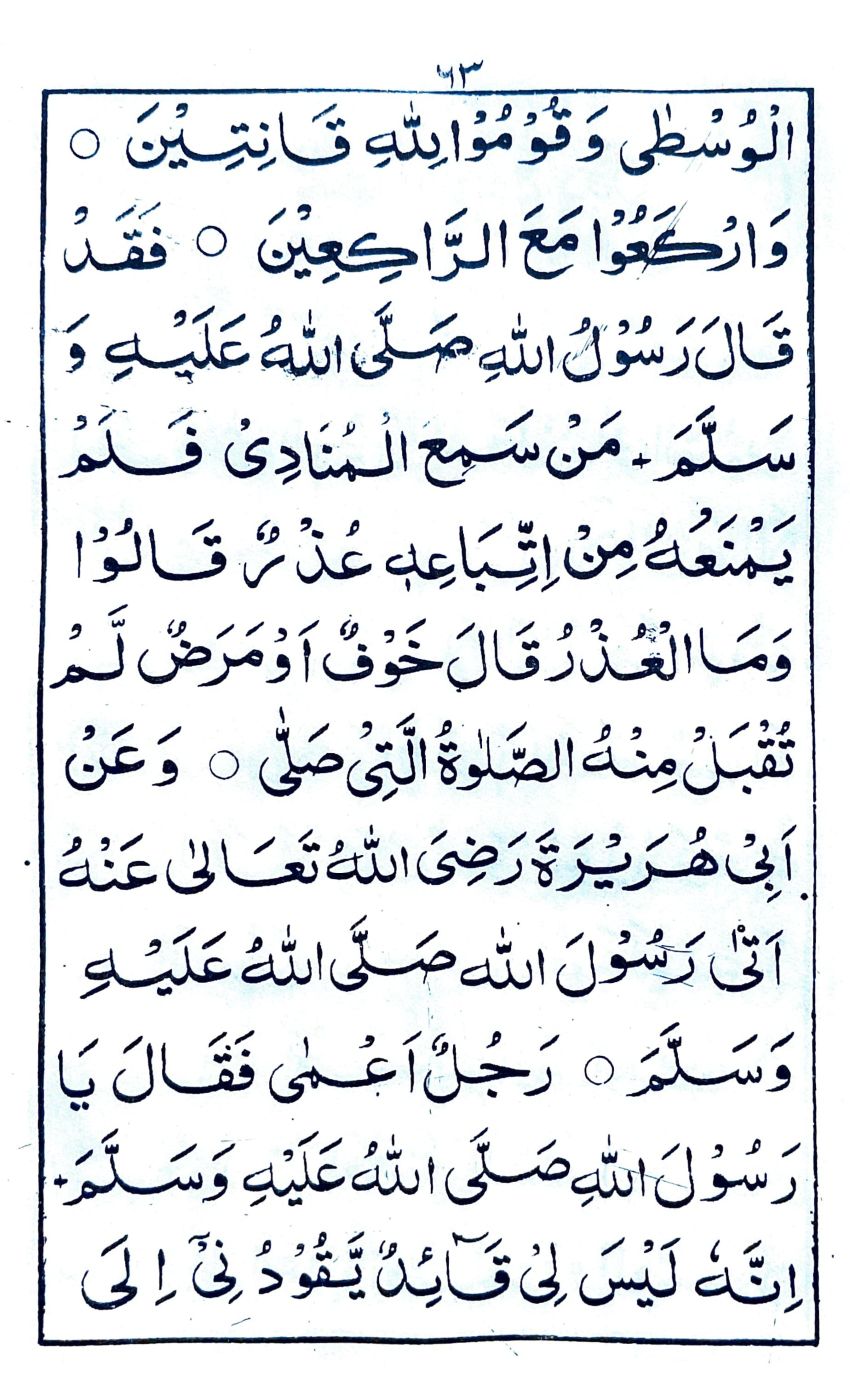 ٦٣
الْوُسْطٰى وَقُوْمُوْا لِلّٰهِ قَانِتِيْنَ ○
وَارْكَعُوْا مَعَ الرَّاكِعِيْنَ ○ فَقَدْ
قَالَ رَسُوْلُ اللّٰهِ صَلَّى اللّٰهُ عَلَيْهِ وَ
سَلَّمَ + مَنْ سَمِعَ الْمُنَادِیْ فَلَمْ
يَمْنَعُهُ مِنْ اِتِّبَاعِهٖ عُذْرٌ قَالُوْا
وَمَا الْعُذْرُ قَالَ خَوْفٌ اَوْ مَرَضٌ لَّمْ
تُقْبَلْ مِنْهُ الصَّلٰوةُ الَّتِیْ صَلّٰى ○ وَعَنْ
اَبِیْ هُرَيْرَةَ رَضِیَ اللّٰهُ تَعَالٰى عَنْهُ
اَتٰى رَسُوْلَ اللّٰه صَلَّى اللّٰهُ عَلَيْهِ
وَسَلَّمَ ○ رَجُلٌ اَعْمٰى فَقَالَ يَا
رَسُوْلَ اللّٰهِ صَلَّى اللّٰهُ عَلَيْهِ وَسَلَّمَ +
اِنَّهٗ لَيْسَ لِیْ قَآئِدٌ يَّقُوْدُ نِیْ اِلَى